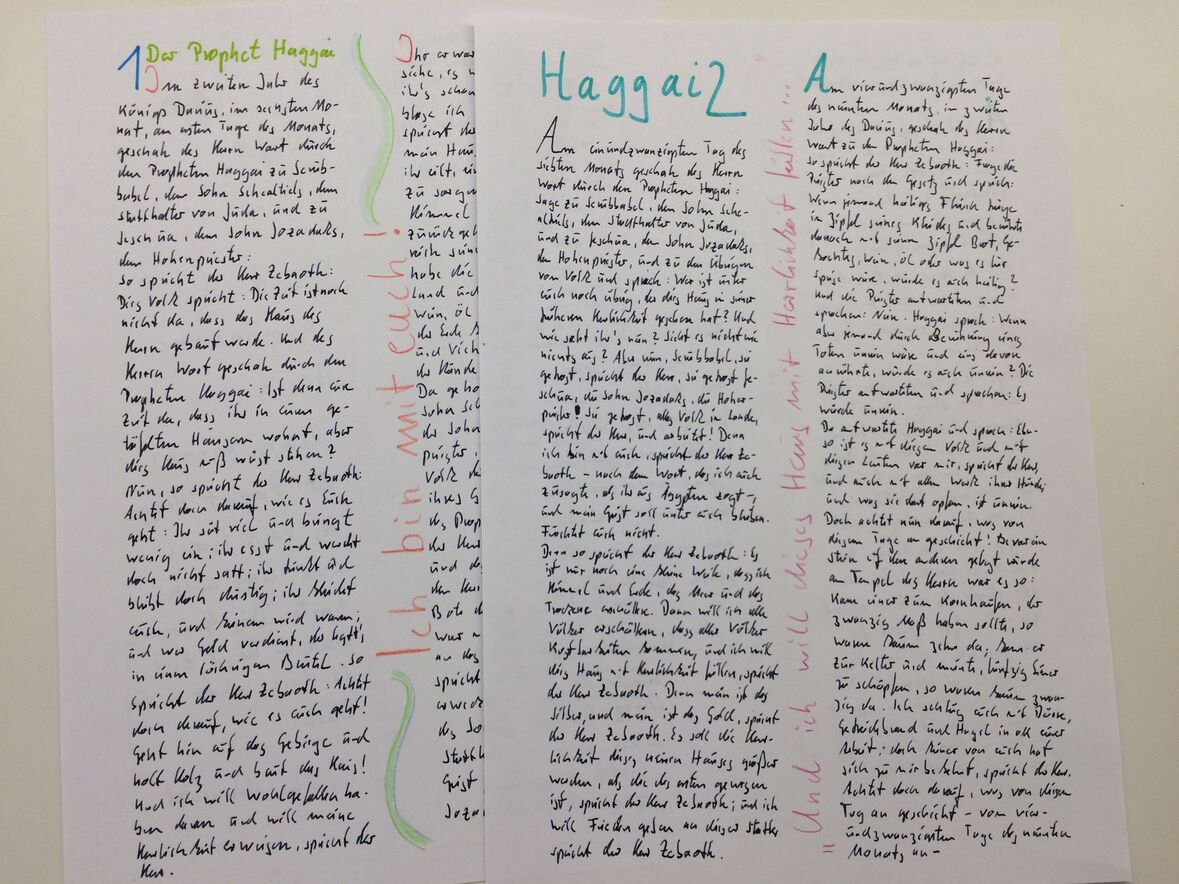 1 Der Prophet Haggai
Im zweiten Jahr des
Königs Darius, im sechsten Mo-
nat, am ersten Tage des Monats,
geschah des Herrn Wort durch
den Propheten Haggai zu Serub-
babel, dem Sohn Schealtiels, dem
Statthalter von Juda, und zu
Jeschua, dem Sohn Jozadaks,
dem Hohenpriester:
So spricht der Herr Zebaoth:
Dies Volk spricht: Die Zeit ist noch
nicht da, dass das Haus des
Herrn gebaut werde. Und des
Herrn Wort geschah durch den
Propheten Haggai: Ist denn eure
Zeit da, dass ihr in euren ge-
täfelten Häusern wohnt, aber
dies Haus muß wüst stehen?
Nun, so spricht der Herr Zebaoth:
Achtet doch darauf, wie es euch
geht: Ihr sät viel und bringt
wenig ein; ihr esst und werdet
doch nicht satt; ihr trinkt und
bleibt doch durstig; ihr kleidet
euch, und keinem wird warm;
und wer Geld verdient, der legt's
in einen löchrigen Beutel. So
spricht der Herr Zebaoth: Achtet
doch darauf, wie es euch geht!
Geht hin auf das Gebirge und
holt Holz und baut das Haus!
Und ich will Wohlgefallen ha-
ben daran und will meine
Herrlichkeit erweisen, spricht der
Herr.
Ich bin mit euch!
Ihr erwar
siehe, es w
ihr's schon
blase ich
spricht der
mein Haus
ihr eilt, ein
zu sorgen
Himmel
zurückgeh
habe die
Land und
Wein, Öl
die Erde
und Vieh
der Hände
Da geho
Sohn Sch
der Sohn
priester,
Volk de
ihres G
des Prop
der Herr
und das
den Herr
Bote d
war m
an das
spricht
erweck
des So
Statth
Geist
Joza
Haggai 2
Am einundzwanzigsten Tag des
siebten Monats geschah des Herrn
Wort durch den Propheten Haggai:
Sage zu Serubbabel, dem Sohn Sche-
altiels, dem Statthalter von Juda,
und zu Jeschua, dem Sohn Jozadaks,
dem Hohenpriester, und zu den Übrigen
vom Volk und sprich: Wer ist unter
euch noch übrig, der dies Haus in seiner
früheren Herrlichkeit gesehen hat? Und
wie seht ihr's nun? Sieht es nicht wie
nichts aus? Aber nun, Serubbabel, sei
getrost, spricht der Herr, sei getrost Je-
schua, du Sohn Jozadaks, du Hohe-
priester! Sei getrost, alles Volk im Lande,
spricht der Herr, und arbeitet! Denn
ich bin mit euch, spricht der Herr Ze-
baoth - nach dem Wort, das ich euch
zusagte, als ihr aus Ägypten zogt -,
und mein Geist soll unter euch bleiben.
Fürchtet euch nicht.
Denn so spricht der Herr Zebaoth: Es
ist nur noch eine kleine Weile, dass ich
Himmel und Erde, das Meer und das
Trockene erschüttere. Dann will ich alle
Völker erschüttern, dass aller Völker
Kostbarkeiten kommen, und ich will
dies Haus mit Herrlichkeit füllen, spricht
der Herr Zebaoth. Denn mein ist das
Silber, und mein ist das Gold, spricht
der Herr Zebaoth. Es soll die Herr-
lichkeit dieses neuen Hauses größer
werden, als die des ersten gewesen
ist, spricht der Herr Zebaoth; und ich
will Frieden geben an dieser Stätte,
spricht der Herr Zebaoth.
"Und ich will dieses Haus mit Herrlichkeit füllen..."
Am vierundzwanzigsten Tage
des neunten Monats, im zweiten
Jahr des Darius, geschah des Herrn
Wort zu dem Propheten Haggai:
So spricht der Herr Zebaoth: Frage die
Priester nach dem Gesetz und sprich:
Wenn jemand heiliges Fleisch trüge
im Zipfel seines Kleides und berührte
danach mit seinem Zipfel Brot, Ge-
kochtes, Wein, Öl oder was es für
Speise wäre, würde es auch heilig?
Und die Priester antworteten und
sprachen: Nein. Haggai sprach: Wenn
aber jemand durch Berührung eines
Toten unrein wäre und eins davon
anrührte, würde es auch unrein? Die
Priester antworteten und sprachen: Es
würde unrein.
Da antwortete Haggai und sprach: Eben-
so ist es mit diesem Volk und mit
diesen Leuten vor mir, spricht der Herr,
und auch mit allem Werk ihrer Hände;
und was sie dort opfern, ist unrein.
Doch achtet nun darauf, was von
diesem Tage an geschieht! Bevor ein
Stein auf den anderen gelegt wurde
am Tempel des Herrn war es so:
Kam einer zum Kornhaufen, der
zwanzig Maß haben sollte, so
waren kaum zehn da; kam er
zur Kelter und meinte, fünfzig Eimer
zu schöpfen, so waren kaum zwan-
zig da. Ich schlug euch mit Dürre,
Getreidebrand und Hagel in all eurer
Arbeit; doch keiner von euch hat
sich zu mir bekehrt, spricht der Herr.
Achtet doch darauf, was von diesem
Tag an geschieht - vom vier-
undzwanzigsten Tage des neunten
Monats an -